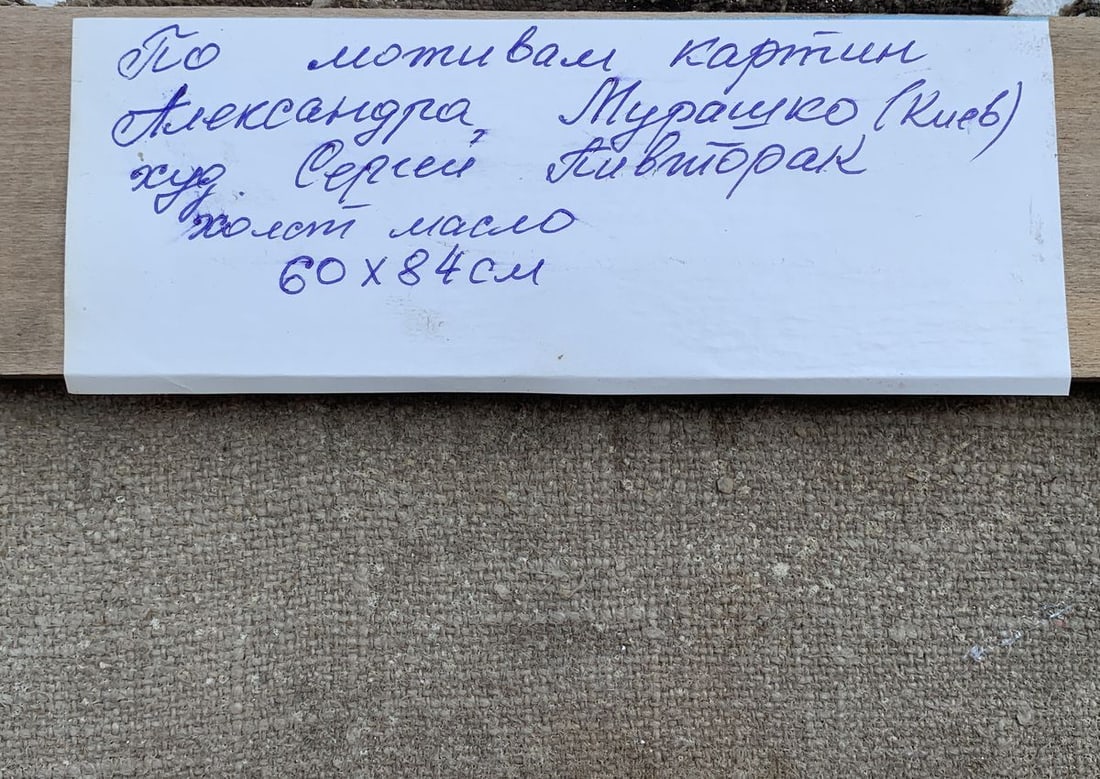 По мотивам картин
Александра Мурашко (Киев)
худ. Сергей Пивторак
холст масло
60х84см